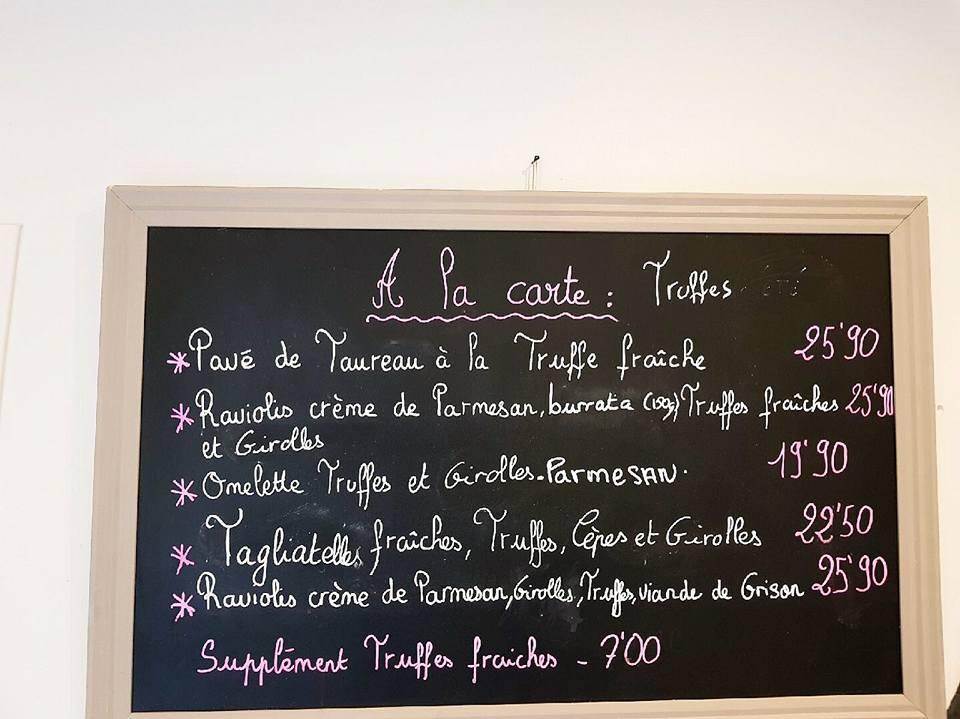 A la carte : Truffes été
* Pavé de Taureau à la Truffe fraîche 25'90
* Raviolis crème de Parmesan, burrata (100g) Truffes fraîches 25'90
et Girolles
* Omelette Truffes et Girolles-PARMESAN. 19'90
* Tagliatelles fraîches, Truffes, Cèpes et Girolles 22'50
* Raviolis crème de Parmesan, Girolles, Truffes, viande de Grison 25'90
Supplément Truffes fraiches - 7'00